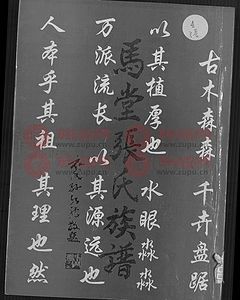 古木森森 千卉盘踞
以其植厚也 水眼淼淼
馬堂張氏族譜
万派流长 以其源远也
人本乎其祖 其理也然
www.zupu.cn